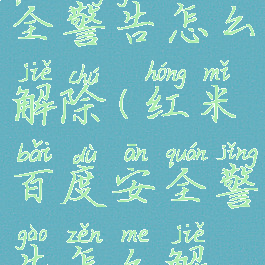 全警告怎么
jiě chú hóng mǐ
解除(红米
bǎi dù ān quán jǐng
百度安全警
gào zěn me jiě
告怎么解